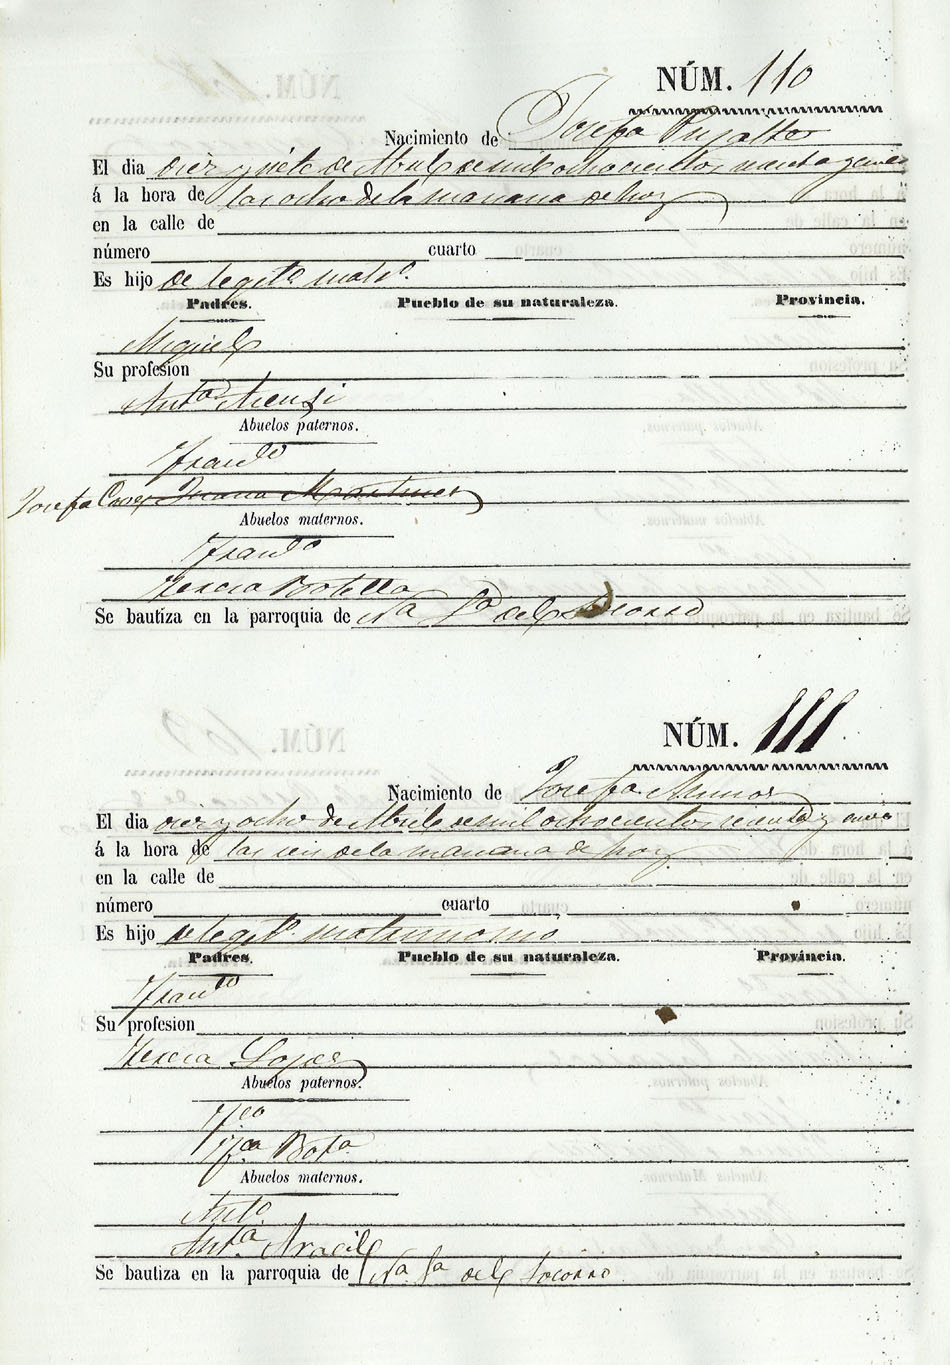 NÚM. 110
Nacimiento de Josefa Pujalte
El dia diez y siete de Abril de mil ochocientos
á la hora de las ocho de la manana de hoy
en la calle de
número cuarto
Es hijo de legit.o mat.o
Padres. Pueblo de su naturaleza. Provincia.
Miguel
Su profesion
Ant.a Asensi
Abuelos paternos.
Fran.co
Josefa Juana Martinez
Abuelos maternos.
Fran.co
Teresa Botella
Se bautiza en la parroquia de Na Sa del Socorro
NÚM. 111
Nacimiento de Josefa Munos
El dia diez y ocho de Abril de mil ochocientos sesenta y
á la hora de las seis de la manana de hoy
en la calle de
número cuarto
Es hijo de legit.o matrimonio
Padres. Pueblo de su naturaleza. Provincia.
Fran.co
Su profesion
Teresa Lopez
Abuelos paternos.
F.co
F.ca Bota
Abuelos maternos.
Ant.o
Ant.a Aracil
Se bautiza en la parroquia de Na Sa del Socorro